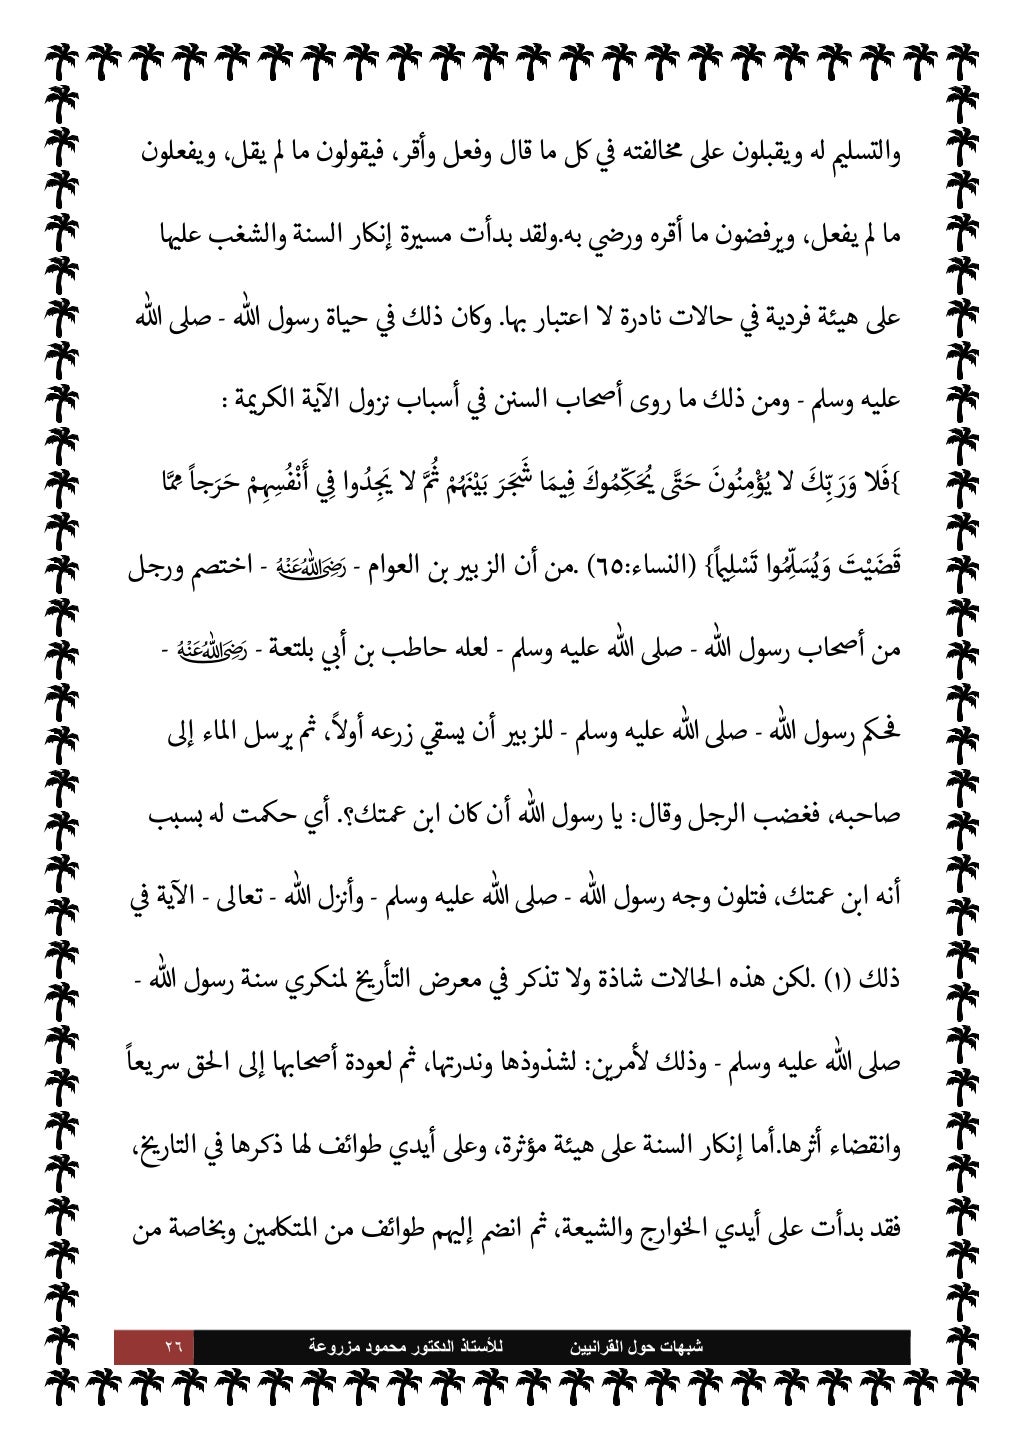 والتسليم له ويقبلون على مخالفته في كل ما قال وفعل وأقر، فيقولون ما لم يقل، ويفعلون
ما لم يفعل، ويرفضون ما أقره ورضي به.ولقد بدأت مسيرة إنكار السنة والشغب عليها
على هيئة فردية في حالات نادرة لا اعتبار بها. وكان ذلك في حياة رسول الله - صلى الله
عليه وسلم - ومن ذلك ما روى أصحاب السنن في أسباب نزول الآية الكريمة :
}فَلا وَرَبِّكَ لا يُؤْمِنُونَ حَتَّى يُحَكِّمُوكَ فِيمَا شَجَرَ بَيْنَهُمْ ثُمَّ لا يَجِدُوا فِي أَنْفُسِهِمْ حَرَجاً مِمَّا
قَضَيْتَ وَيُسَلِّمُوا تَسْلِيماً} (النساء:٦٥) .من أن الزبير بن العوام - رَضِيَ اللَّهُ عَنْهُ - اختصم ورجل
من أصحاب رسول الله - صلى الله عليه وسلم - لعله حاطب بن أبي بلتعة - رَضِيَ اللَّهُ عَنْهُ -
فحكم رسول الله - صلى الله عليه وسلم - للزبير أن يسقي زرعه أولاً، ثم يرسل الماء إلى
صاحبه، فغضب الرجل وقال: يا رسول الله أن كان ابن عمتك؟. أي حكمت له بسبب
أنه ابن عمتك، فتلون وجه رسول الله - صلى الله عليه وسلم - وأنزل الله - تعالى - الآية في
ذلك (١) .لكن هذه الحالات شاذة ولا تذكر في معرض التأريخ لمنكري سنة رسول الله -
صلى الله عليه وسلم - وذلك لأمرين: لشذوذها وندرتها، ثم لعودة أصحابها إلى الحق سريعاً
وانقضاء أثرها.أما إنكار السنة على هيئة مؤثرة، وعلى أيدي طوائف لها ذكرها في التاريخ،
فقد بدأت على أيدي الخوارج والشيعة، ثم انضم إليهم طوائف من المتكلمين وبخاصة من
شبهات حول القرانيين للأستاذ الدكتور محمود مزروعة ٢٦